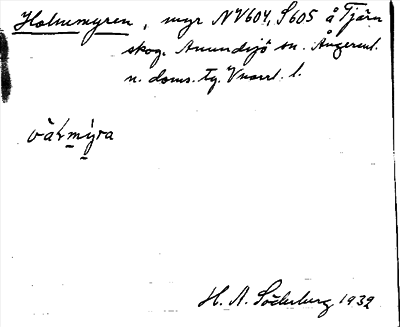 Holmmyren, myr NV604, S605 å Tjärn
skog. Anundsjö sn. Ångerml.
n. doms. tg. Vnorrl. l.
H. A. Söderberg 1932